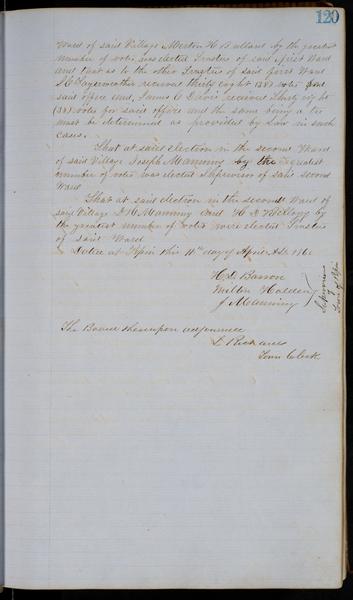 120
Ward of said Village Merton H Bullard by the greatest
number of votes was elected Trustee of said first Ward
and that as to the other Trustees of said first Ward
received thirty eight (38) votes for
said office and James C Davis received thirty eight
(38) votes for said office and the same being a tie
must be determined as provided by law in such
cases.
That at said election in the second Ward
of said Village Joseph Manning by the Greatest
number of votes was elected Supervisor of said second
Ward
That at said election in the second Ward of
said Village D H Manning and H D by
the greatest number of votes were elected Trustees
of said Ward
Dated at this 11th day of April AD
H D Barron
Milton Holden
J Manning
Supervisors
of
Town of
The Board thereupon adjourned
D Richards
Town Clerk